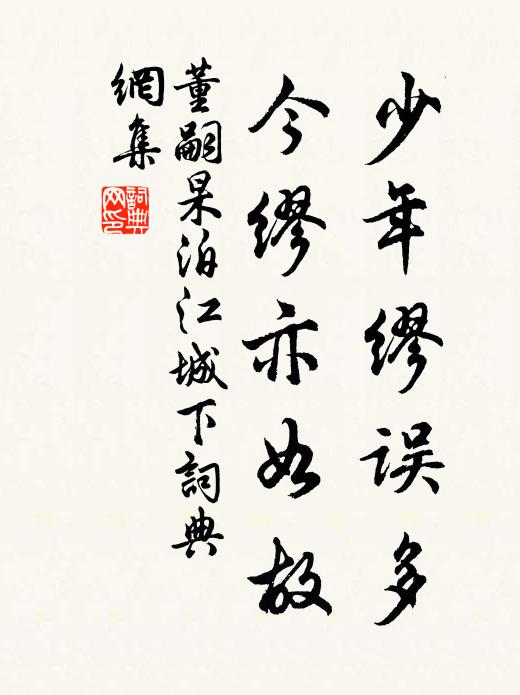 少年繆誤多
今繆亦如故
董嗣杲泊江城下詞典
網集
詞典網印